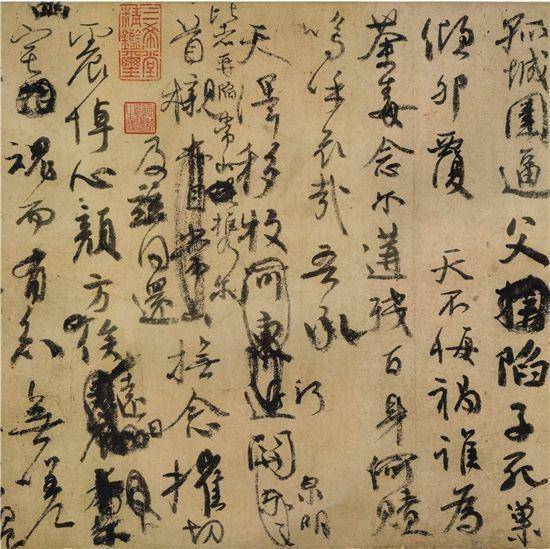 孤城圍逼父陷子死巢
傾卵覆 天不悔禍誰為
荼毒念爾遘殘百身何贖
嗚呼哀哉吾承
天澤移牧河關
泉明
比者再陷常山攜爾
首櫬 撫念摧切
及茲同還
震悼心顏方俟遠日
幽宅魂而有知無嗟
三希堂精鑑璽